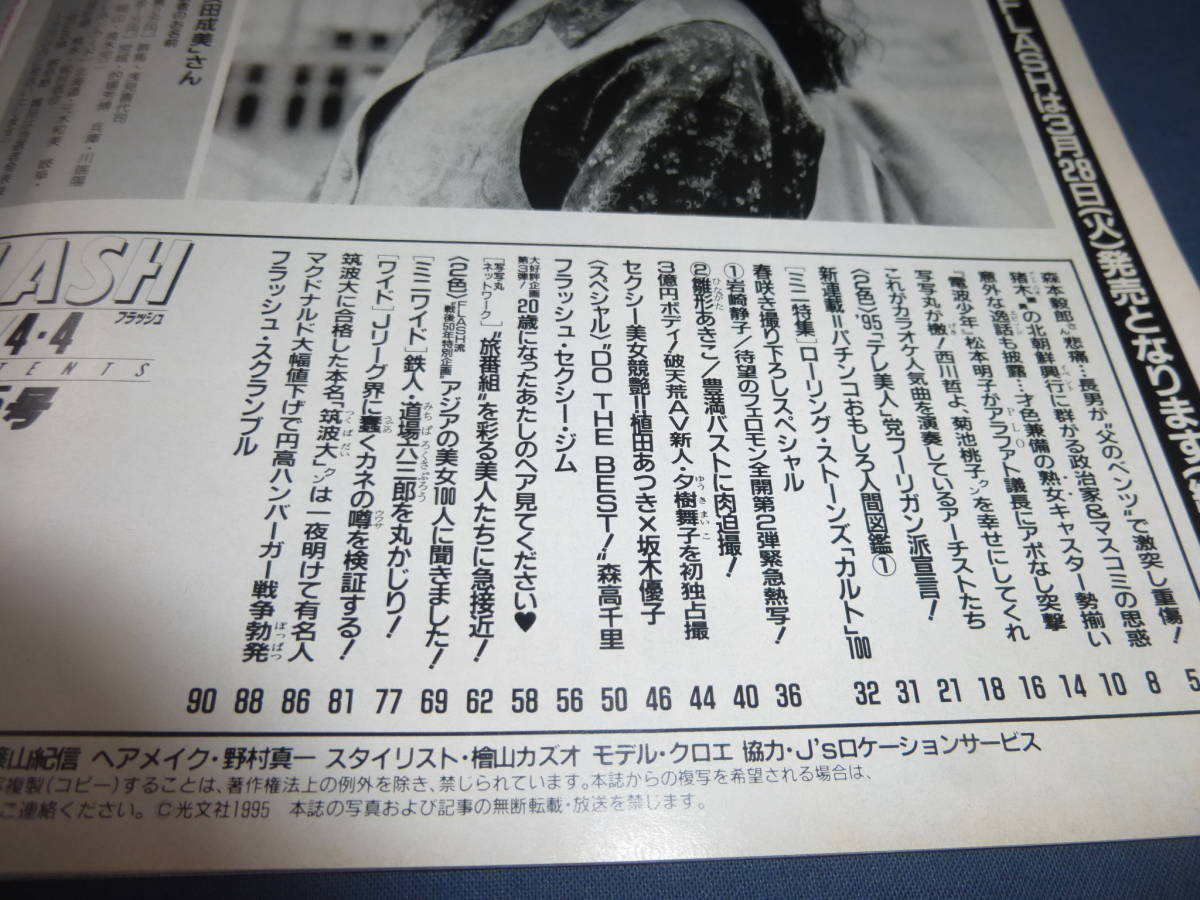 LASHは3月28日(火)発売となります
田成美」さん
森本毅郎さん悲痛…長男が“父のベンツ”で激突し重傷! 5
の北朝鮮興行に群がる政治家&マスコミの思惑 8
意外な逸話も披露…才色兼備の熟女・キャスター勢揃い 10
『電波少年』松本明子がアラファト議長にアポなし突撃 14
写写丸が檄!西川哲よ、菊池桃子クンを幸せにしてくれ 16
これがカラオケ人気曲を演奏しているアーチストたち 18
〈2色〉'95“テレ美人”党フーリガン派宣言! 21
新連載=パチンコおもしろ人間図鑑① 31
[ミニ特集]ローリング・ストーンズ「カルト」100 32
春咲き撮り下ろしスペシャル
①岩崎静子/待望のフェロモン全開第2弾緊急熱写! 36
②雛形あきこ/豊満バストに肉迫撮! 40
3億円ボディ/破天荒AV新人・夕樹舞子を初独占撮 44
セクシー美女競艶!!植田あつき×坂木優子 46
〈スペシャル〉“DO THE BEST!”森高千里 50
フラッシュ・セクシー・ジム 56
大好評企画第3弾! 20歳になったあたしのヘア見てください♥ 58
[写写丸ネットワーク]“旅番組”を彩る美人たちに急接近! 62
〈2色〉FLASH流戦後50年特別企画 アジアの美女100人に聞きました! 69
[ミニワイド]鉄人・道場六三郎を丸かじり! 77
[ワイド]Jリーグ界に蠢くカネの噂を検証する! 81
筑波大に合格した本名“筑波大”クンは一夜明けて有名人 86
マクドナルド大幅値下げで円高ハンバーガー戦争勃発 88
フラッシュ・スクランブル 90
LASH
フラッシュ
4・4
TENTS
号
篠山紀信 ヘアメイク・野村真一 スタイリスト・檜山カズオ モデル・クロエ 協力・J'sロケーションサービス
写複製(コピー)することは、著作権法上の例外を除き、禁じられています。本誌からの複写を希望される場合は、
ご連絡ください。©光文社1995 本誌の写真および記事の無断転載・放送を禁じます。